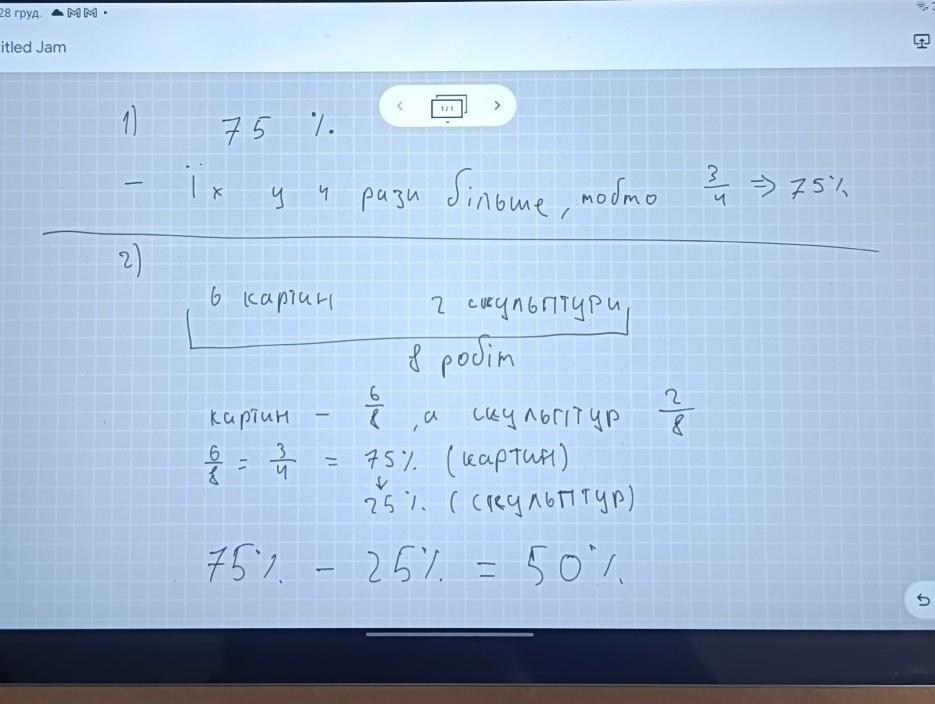 28 груд.
itled Jam
1/1
1) 75 %.
- їх у 4 рази більше, тобто 3/4 => 75%
2)
6 картин 2 скульптури
8 робіт
картин - 6/8, а скульптур 2/8
6/8 = 3/4 = 75% (картин)
25%. (скульптур)
75% - 25% = 50%.